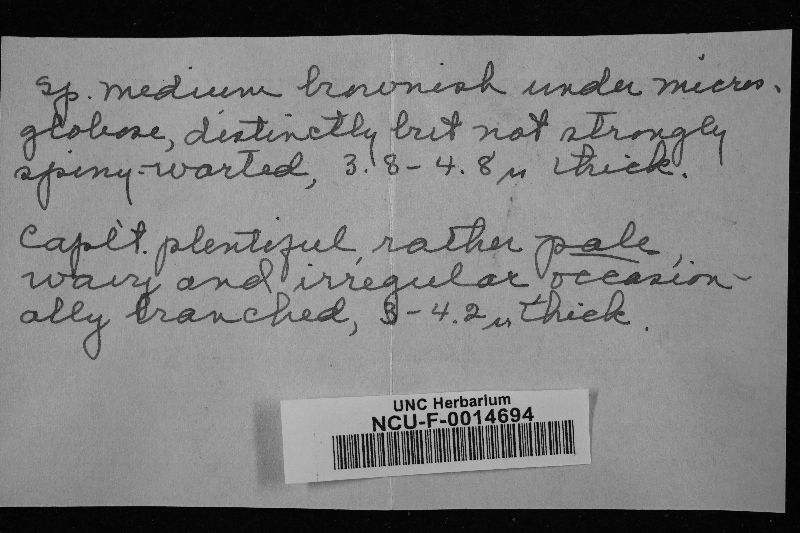 Sp. medium brownish under micros.
globose, distinctly but not strongly
spiny-warted, 3.8-4.8 µ thick.
Capl't. plentiful, rather pale,
wavy and irregular occasion-
ally branched, 3-4.2 µ thick.
UNC Herbarium
NCU-F-0014694